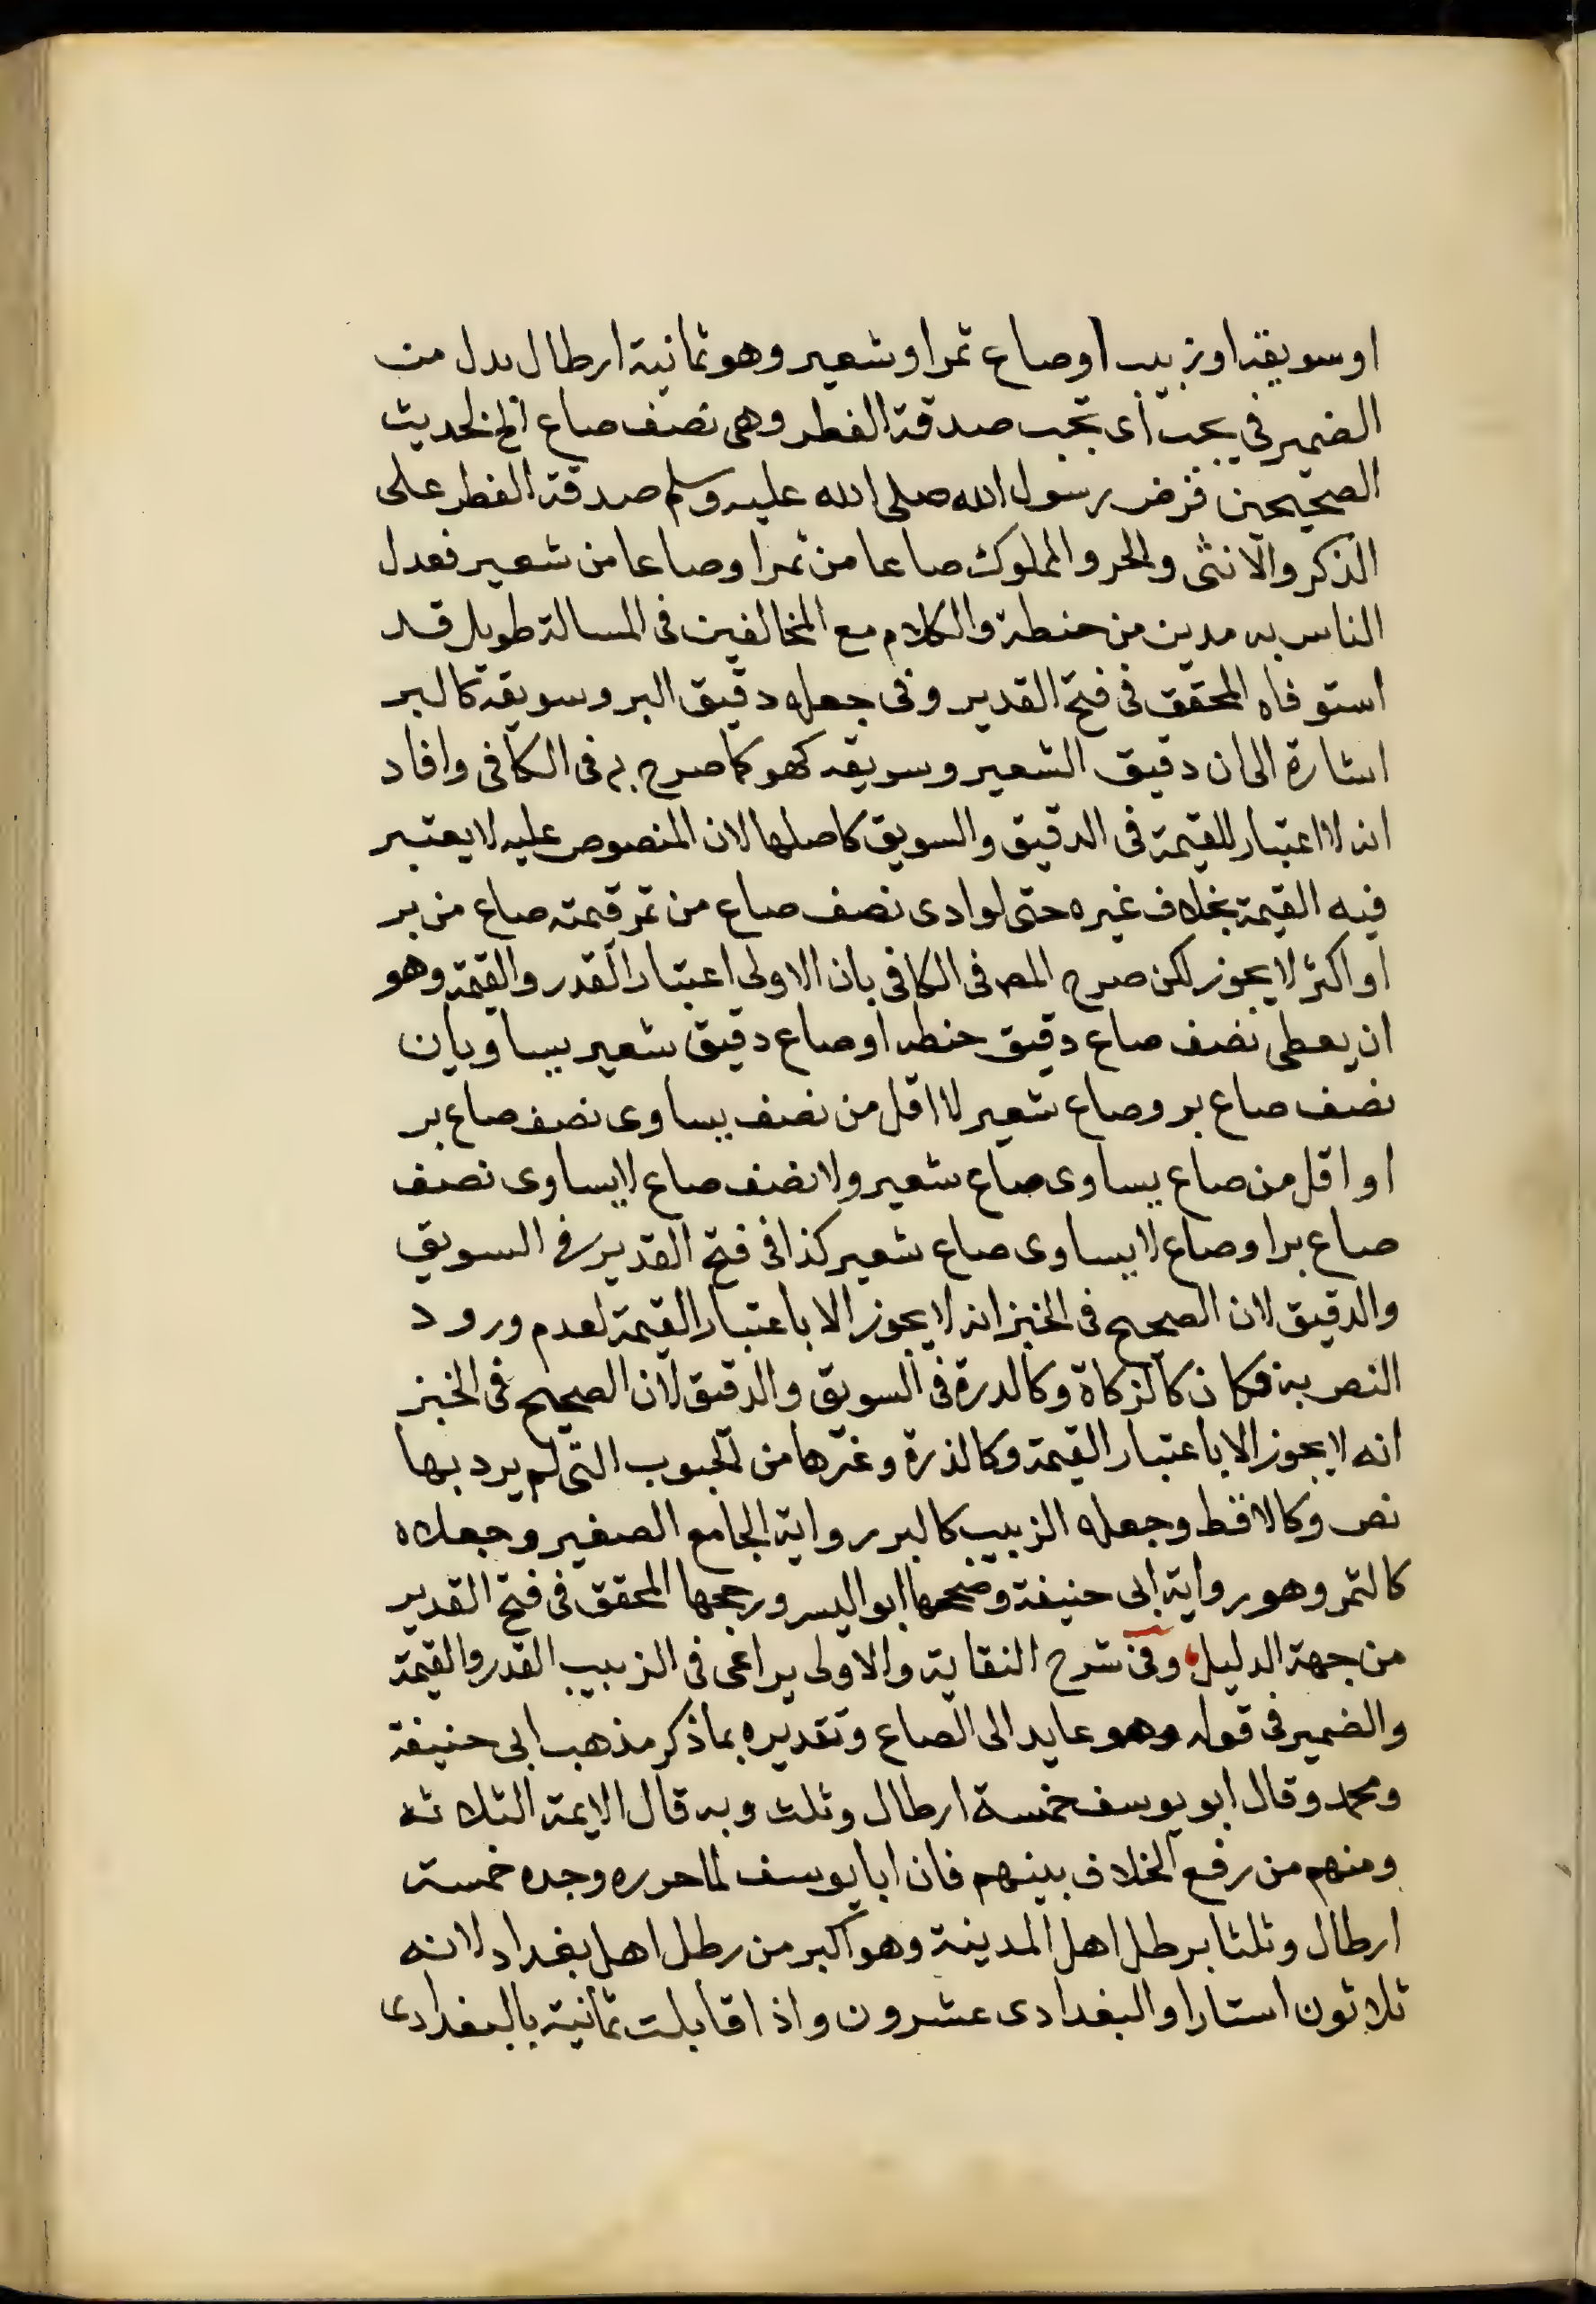 او سويقه او زبيب او صاع تمر او شعير وهو ثمانية ارطال بدل من
الضمير في يجب أى تجب صدقة الفطر وهى نصف صاع الخ لحديث
الصحيحين فرض رسول الله صلى الله عليه وسلم صدقة الفطر على
الذكر والانثى والحر والمملوك صاعا من تمر او صاعا من شعير فعدل
الناس به مدين من حنطة والكلام مع المخالفين فى المسالة طويل قد
استوفاه المحقق فى فتح القدير وفى جعله دقيق البر وسويقه كالبر
اشارة الى ان دقيق الشعير وسويقه كهو كما صرح به فى الكافى وافاد
انه لا اعتبار للقيمة فى الدقيق والسويق كاصلها لان المنصوص عليه لا يعتبر
فيه القيمة بخلاف غيره حتى لو ادى نصف صاع من تمر قيمته صاع من بر
او اكثر لا يجوز لكن صرح المص فى الكافى بان الاولى اعتبار القدر والقيمة وهو
ان يعطى نصف صاع دقيق حنطه او صاع دقيق شعير يساويان
نصف صاع بر وصاع شعير لا اقل من نصف يساوى نصف صاع بر
او اقل من صاع يساوى صاع شعير ولا نصف صاع لا يساوى نصف
صاع بر او صاع لا يساوى صاع شعير كذا فى فتح القدير فى السويق
والدقيق لان الصحيح فى الخبز انه لا يجوز الا باعتبار القيمة لعدم ورود
النص به فكان كالزكاة وكالدرة فى السويق والدقيق لان الصحيح فى الخبز
انه لا يجوز الا باعتبار القيمة وكالذرة وغيرها من الحبوب التى لم يرد بها
نص وكالاقط وجعله الزبيب كالبر رواية الجامع الصغير وجعلاه
كالتمر وهو رواية ابى حنيفة وصححها ابو اليسر ورجحها المحقق فى فتح القدير
من جهة الدليل وفى شرح النقاية والاولى يراعى فى الزبيب القدر والقيمة
والضمير فى قوله وهو عايد الى الصاع وتقديره بما ذكر مذهب ابى حنيفة
ومحمد وقال ابو يوسف خمسة ارطال وثلث وبه قال الايمة الثلاثه
ومنهم من رفع الخلاف بينهم فان ابا يوسف لما حرره وجده خمسة
ارطال وثلثا برطل اهل المدينة وهو اكبر من رطل اهل بغداد لانه
ثلاثون استارا والبغدادى عشرون واذا قابلت ثمانية بالبغدادى